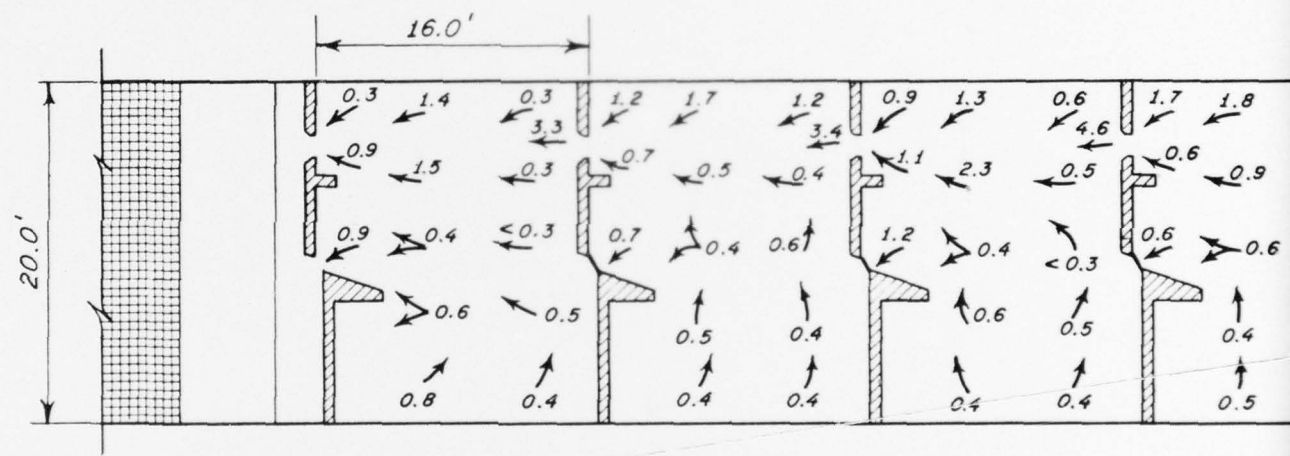 16.0'
20.0'
0.3 1.4 0.3 1.2 1.7 1.2 0.9 1.3 0.6 1.7 1.8
3.3 3.4 4.6
0.9 1.5 0.3 0.7 0.5 0.4 1.1 2.3 0.5 0.6 0.9
0.9 0.4 <0.3 0.7 0.4 0.6 1.2 0.4 <0.3 0.6 0.6
0.6 0.5 0.5 0.4 0.6 0.5 0.4
0.8 0.4 0.4 0.4 0.4 0.4 0.5